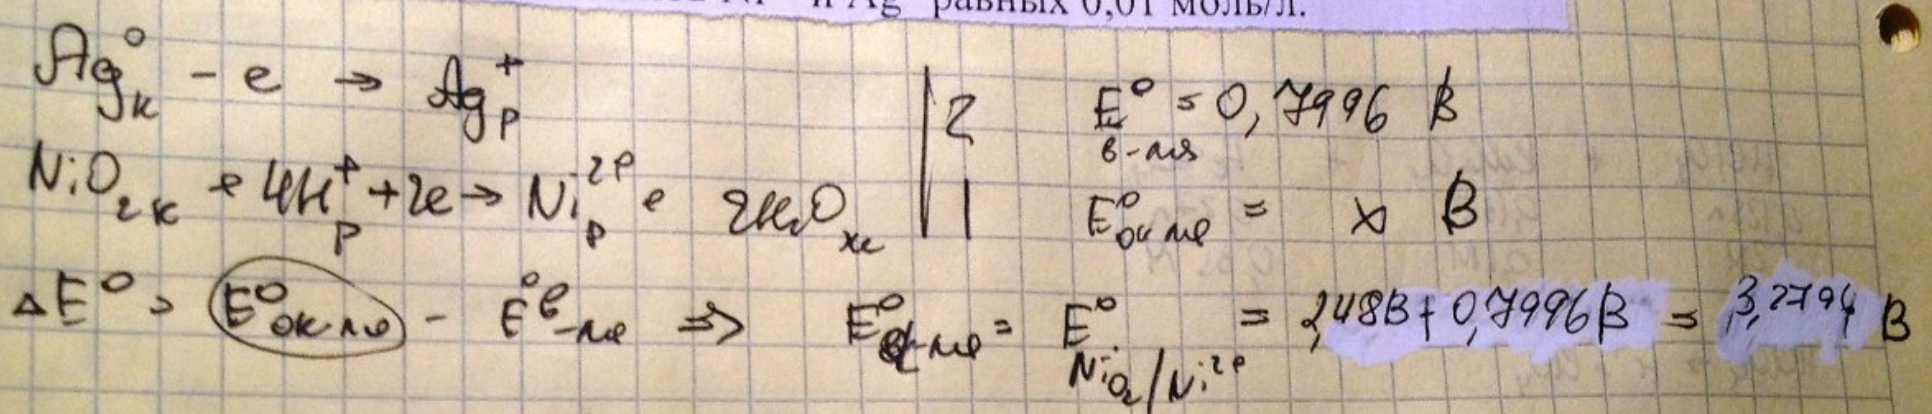 и Ag равных 0,01 моль/л.
Ag⁰к - e → Ag⁺р | 2 E⁰в-ля = 0,7996 В
NiO₂к + 4H⁺р + 2e → Ni²⁺р + 2H₂Oж | 1 E⁰ок-ля = x В
ΔE⁰ = E⁰ок-ля - E⁰в-ля ⇒ E⁰ок-ля = E⁰NiO₂/Ni²⁺ = 2,48В + 0,7996В = 3,2794 В